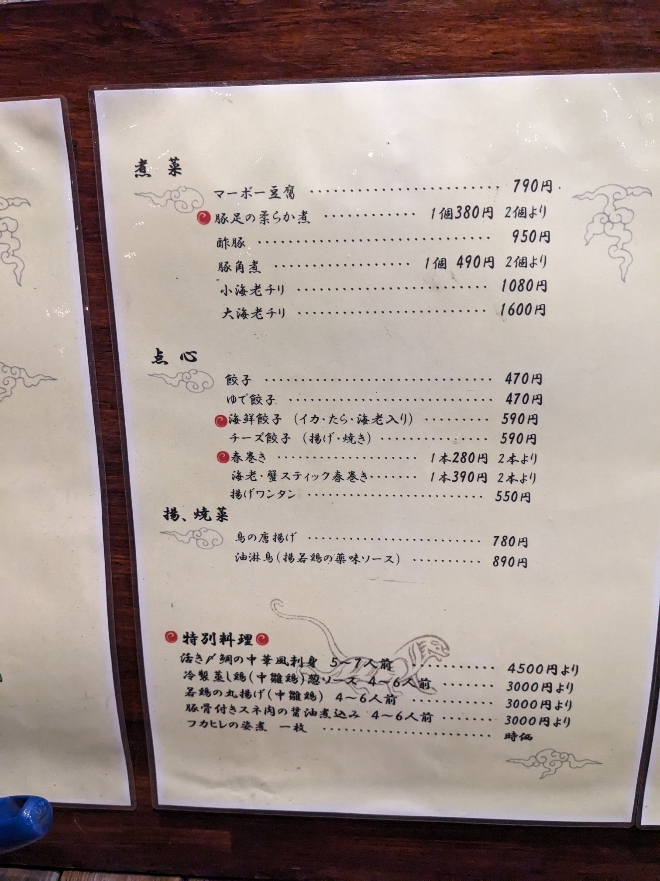 煮菜
マーボー豆腐 ・・・・・・・・・・・・・・・・・・・・・・・ 790円
豚足の柔らか煮 ・・・・・・・・・・・ 1個380円 2個より
酢豚 ・・・・・・・・・・・・・・・・・・・・・・・・・・・・ 950円
豚角煮 ・・・・・・・・・・・・・・・・ 1個 490円 2個より
小海老チリ ・・・・・・・・・・・・・・・・・・・・・・・・ 1080円
大海老チリ ・・・・・・・・・・・・・・・・・・・・・・・・ 1600円
点心
餃子 ・・・・・・・・・・・・・・・・・・・・・・・・・・・・ 470円
ゆで餃子 ・・・・・・・・・・・・・・・・・・・・・・・・・ 470円
海鮮餃子 (イカ・たら・海老入り) ・・・・・・・・・ 590円
チーズ餃子 (揚げ・焼き) ・・・・・・・・・・・・・・ 590円
春巻き ・・・・・・・・・・・・・・・・・・ 1本280円 2本より
海老・蟹スティック春巻き・・・・・・・・ 1本390円 2本より
揚げワンタン ・・・・・・・・・・・・・・・・・・・・・・・ 550円
揚、焼菜
鳥の唐揚げ ・・・・・・・・・・・・・・・・・・・・・・・・ 780円
油淋鳥(揚若鶏の薬味ソース) ・・・・・・・・・・ 890円
特別料理
活き〆鯛の中華風刺身 5～7人前 ・・・・・・・・・・・・ 4500円より
冷製蒸し鶏(中雛鶏)葱ソース 4～6人前 ・・・・・・・・ 3000円より
若鶏の丸揚げ(中雛鶏) 4～6人前 ・・・・・・・・・・・ 3000円より
豚骨付きスネ肉の醤油煮込み 4～6人前 ・・・・・・・・ 3000円より
フカヒレの姿煮 一枚 ・・・・・・・・・・・・・・・・・・・・・・・ 時価